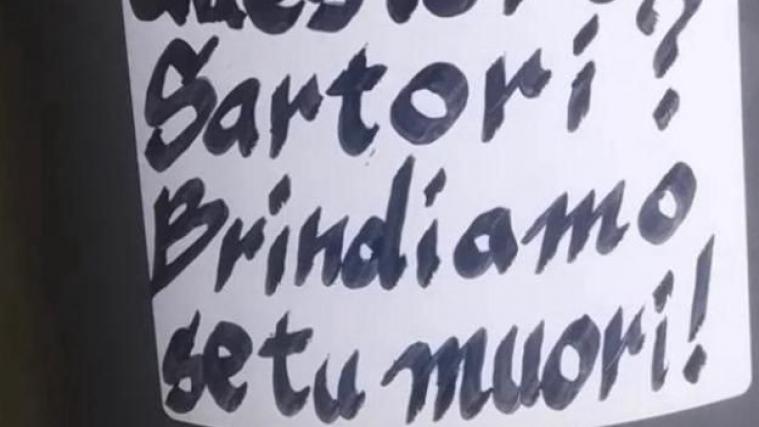 Sartori?
Brindiamo
se tu muori!